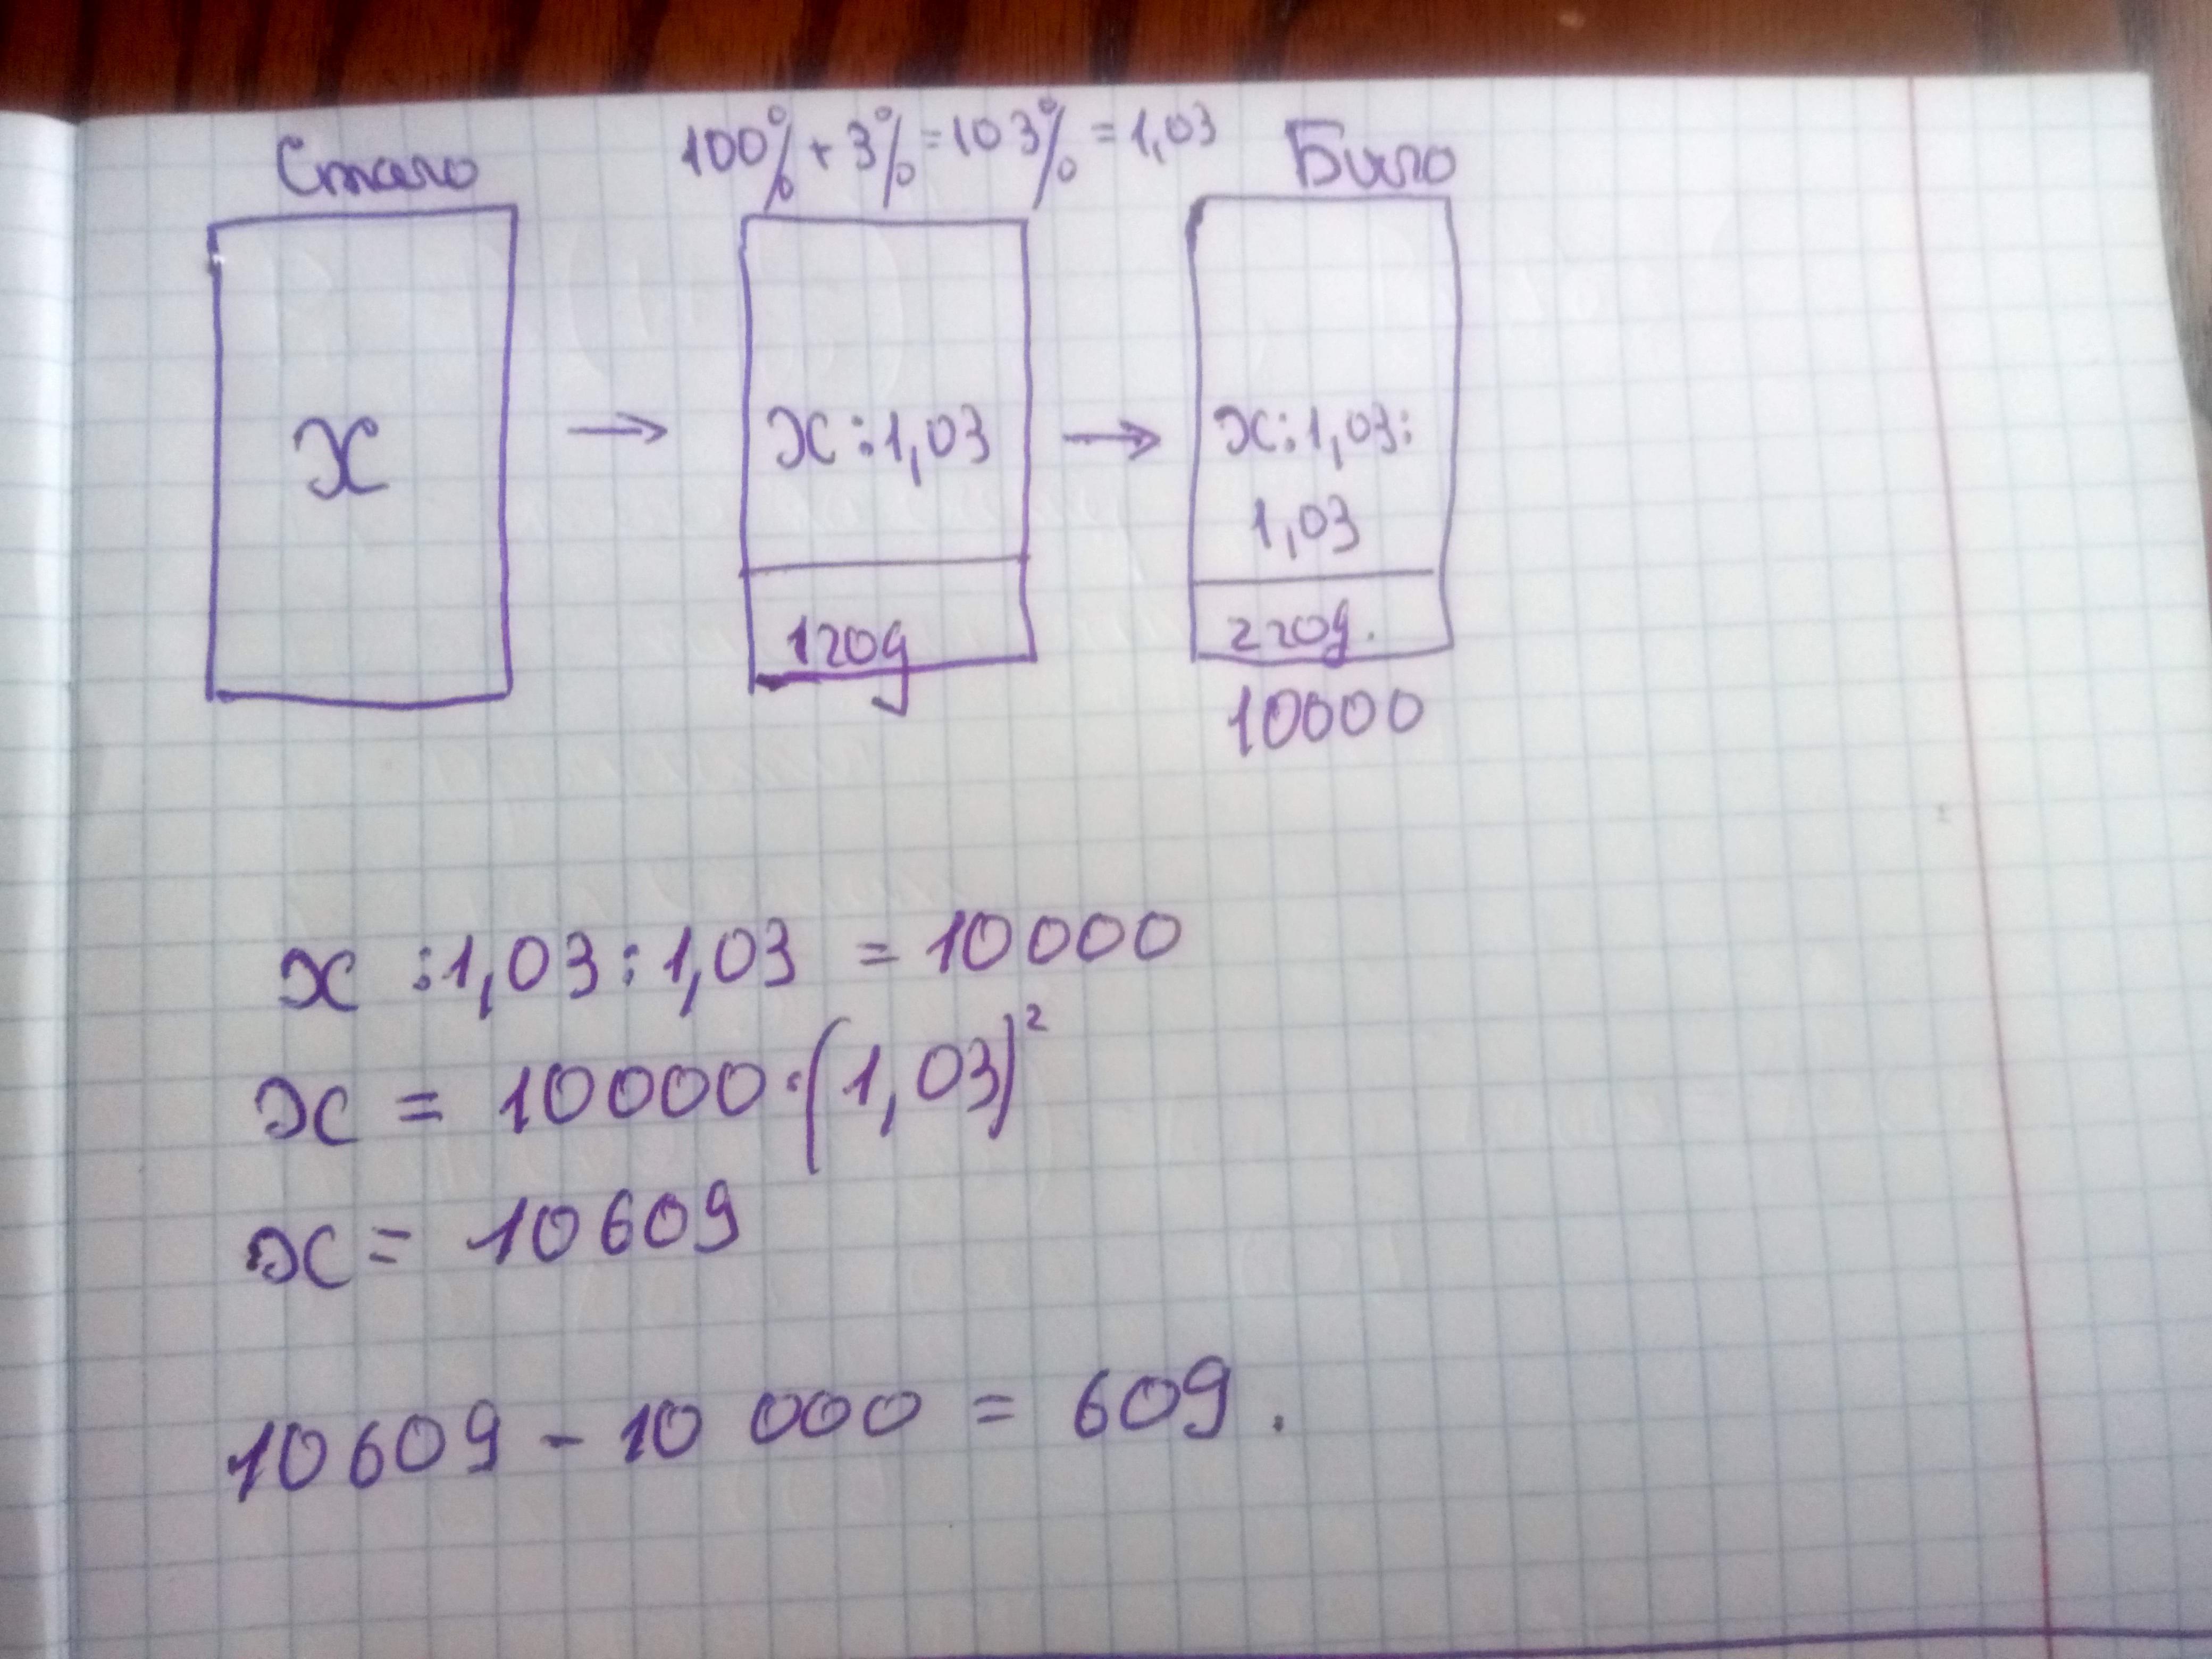 Стало
100% + 3% = 103% = 1,03
Было
x
x : 1,03
x : 1,03 :
1,03
1 год
2 год.
10000
x : 1,03 : 1,03 = 10000
x = 10000 · (1,03)²
x = 10609
10609 - 10 000 = 609.